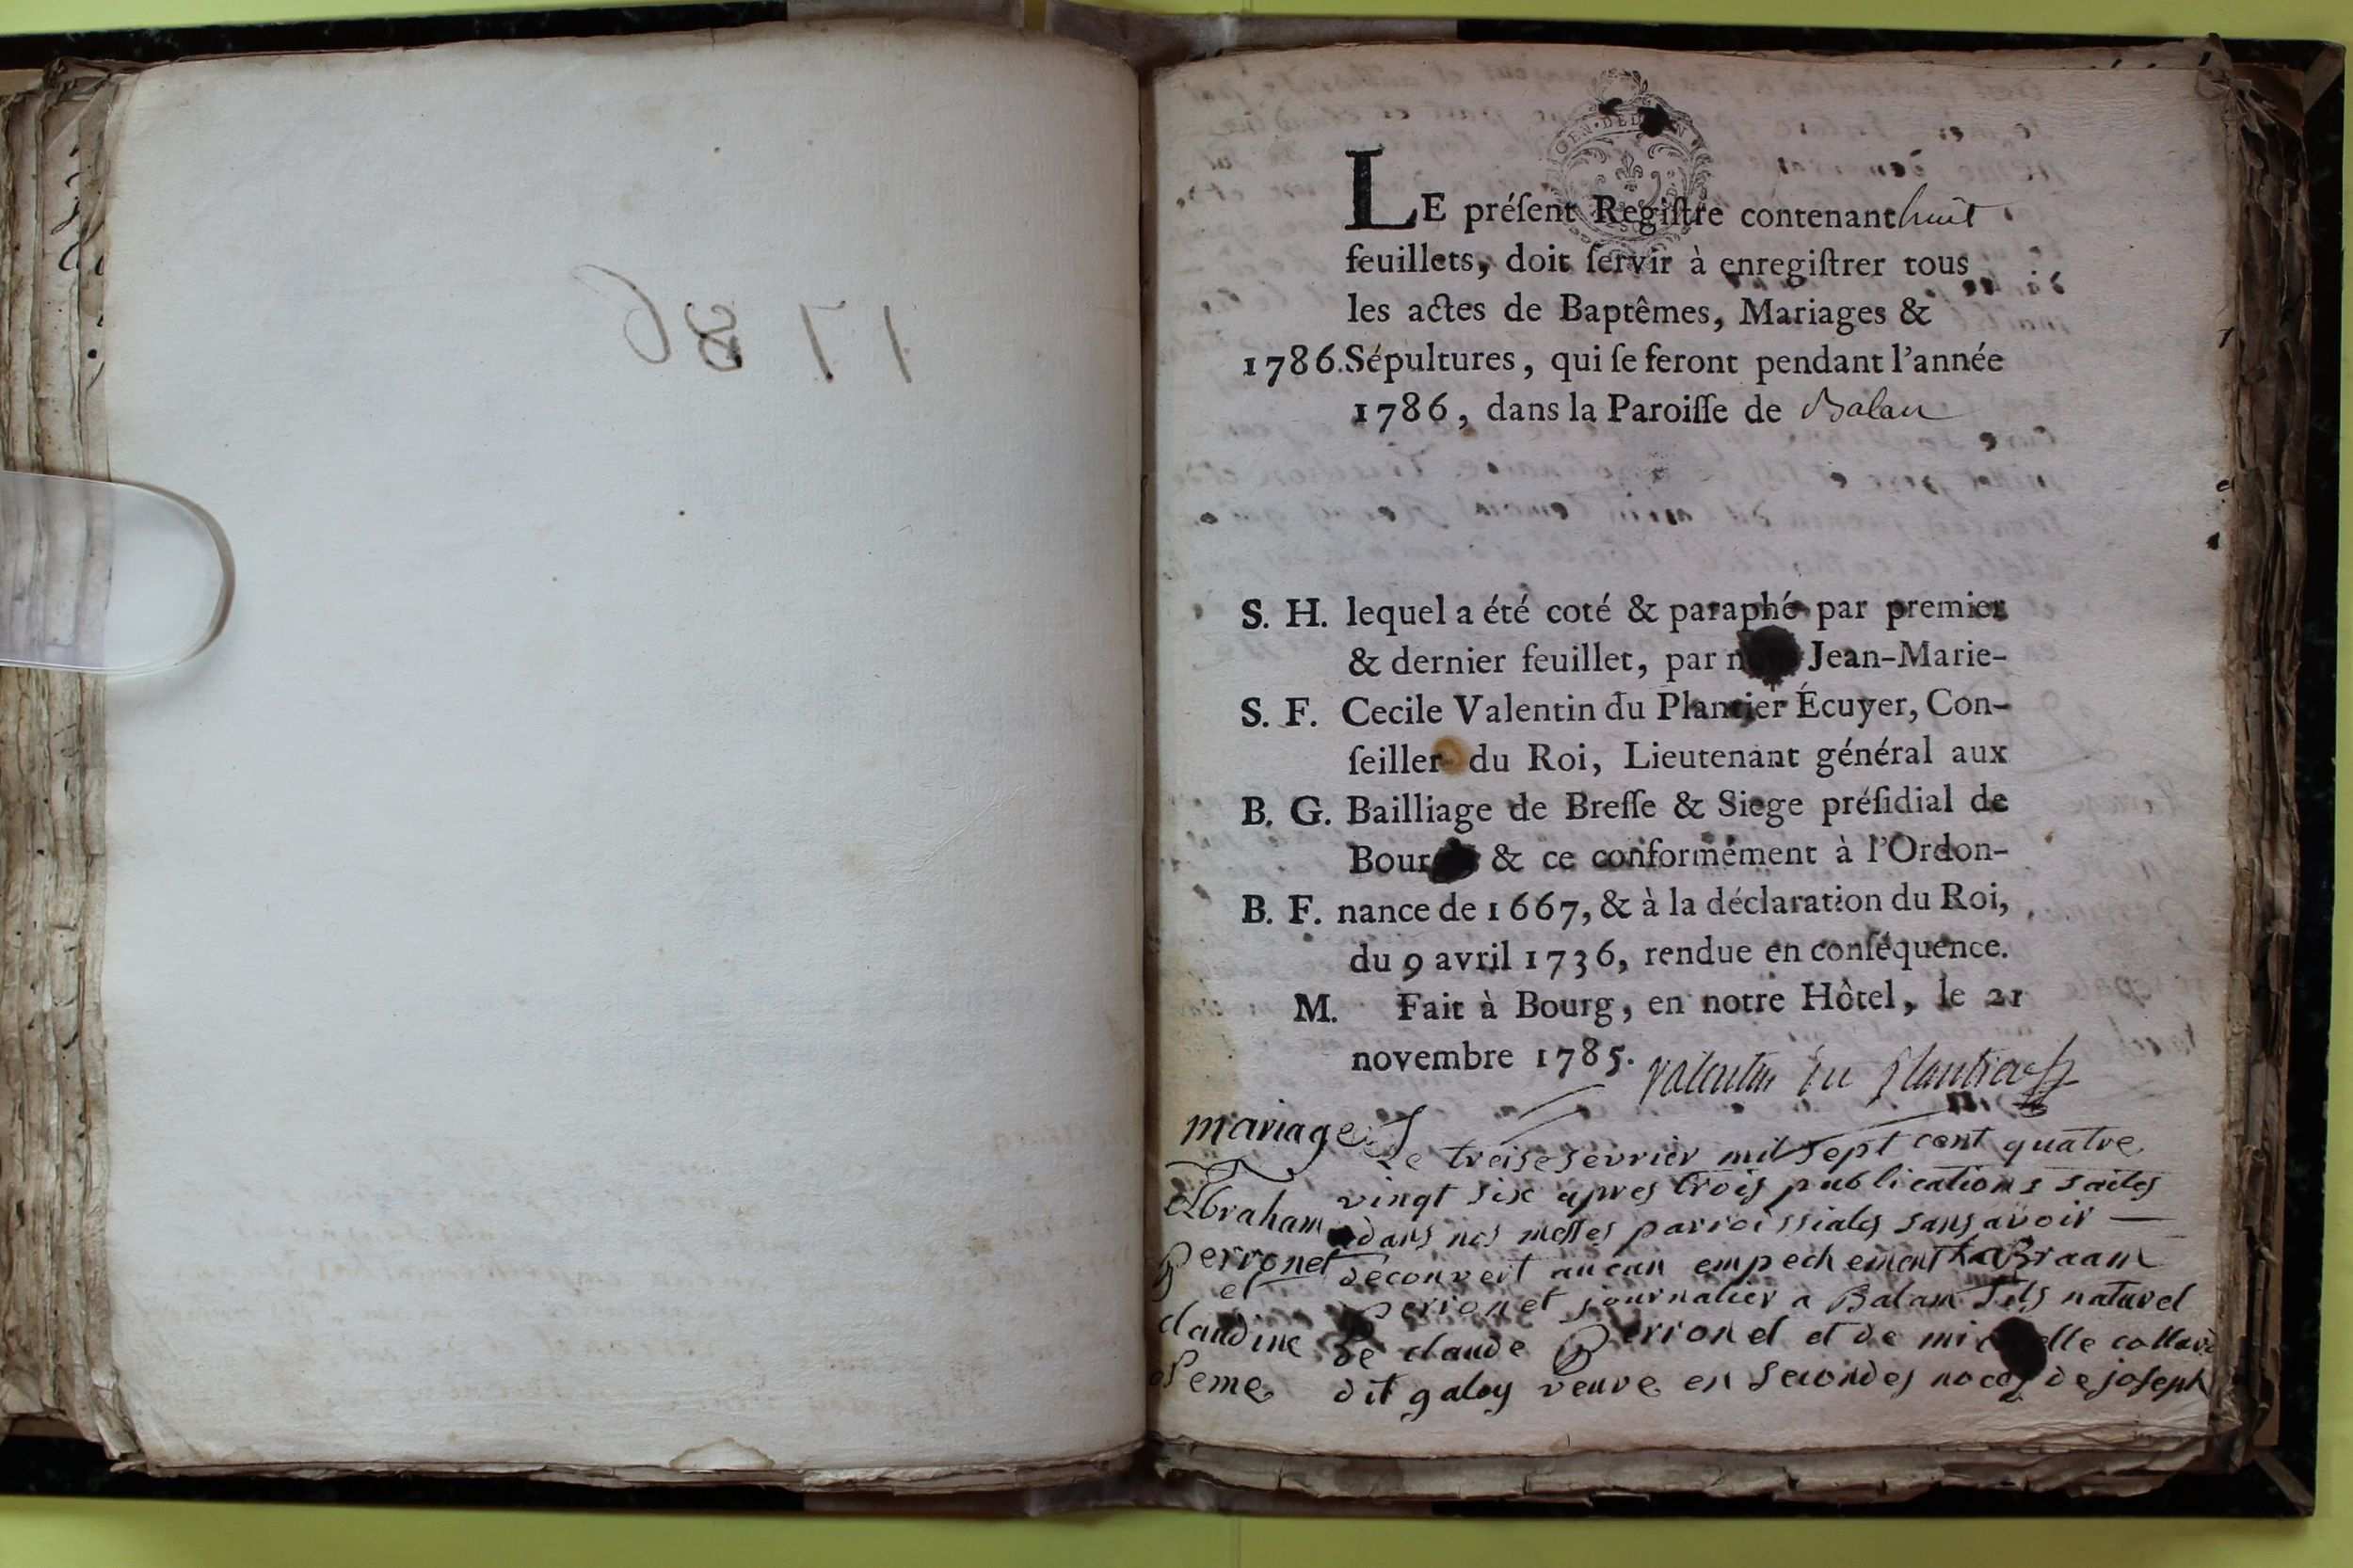 1786
LE préſent Regiſtre contenant huit
feuillets, doit ſervir à enregiſtrer tous
les actes de Baptêmes, Mariages &
1786. Sépultures, qui ſe feront pendant l'année
1786, dans la Paroiſſe de Balan
S. H. lequel a été coté & paraphé par premier
& dernier feuillet, par Jean-Marie-
S. F. Cecile Valentin du Plantier Écuyer, Con-
ſeiller du Roi, Lieutenant général aux
B. G. Bailliage de Breſſe & Siege préſidial de
Bour & ce conformément à l'Ordon-
B. F. nance de 1667, & à la déclaration du Roi,
du 9 avril 1736, rendue en conſéquence.
M. Fait à Bourg, en notre Hôtel, le 21
novembre 1785. Valentin du Plantier
mariage
Abraham
Perronet
et
claudine
Le treise fevrier mil sept cent quatre
vingt six apres trois publications faites
dans nos messes parroissiales sans avoir
decouvert aucun empechement
perronet journalier a Balan fils naturel
de claude Perronet et de
dit galoy veuve en secondes noces de joseph